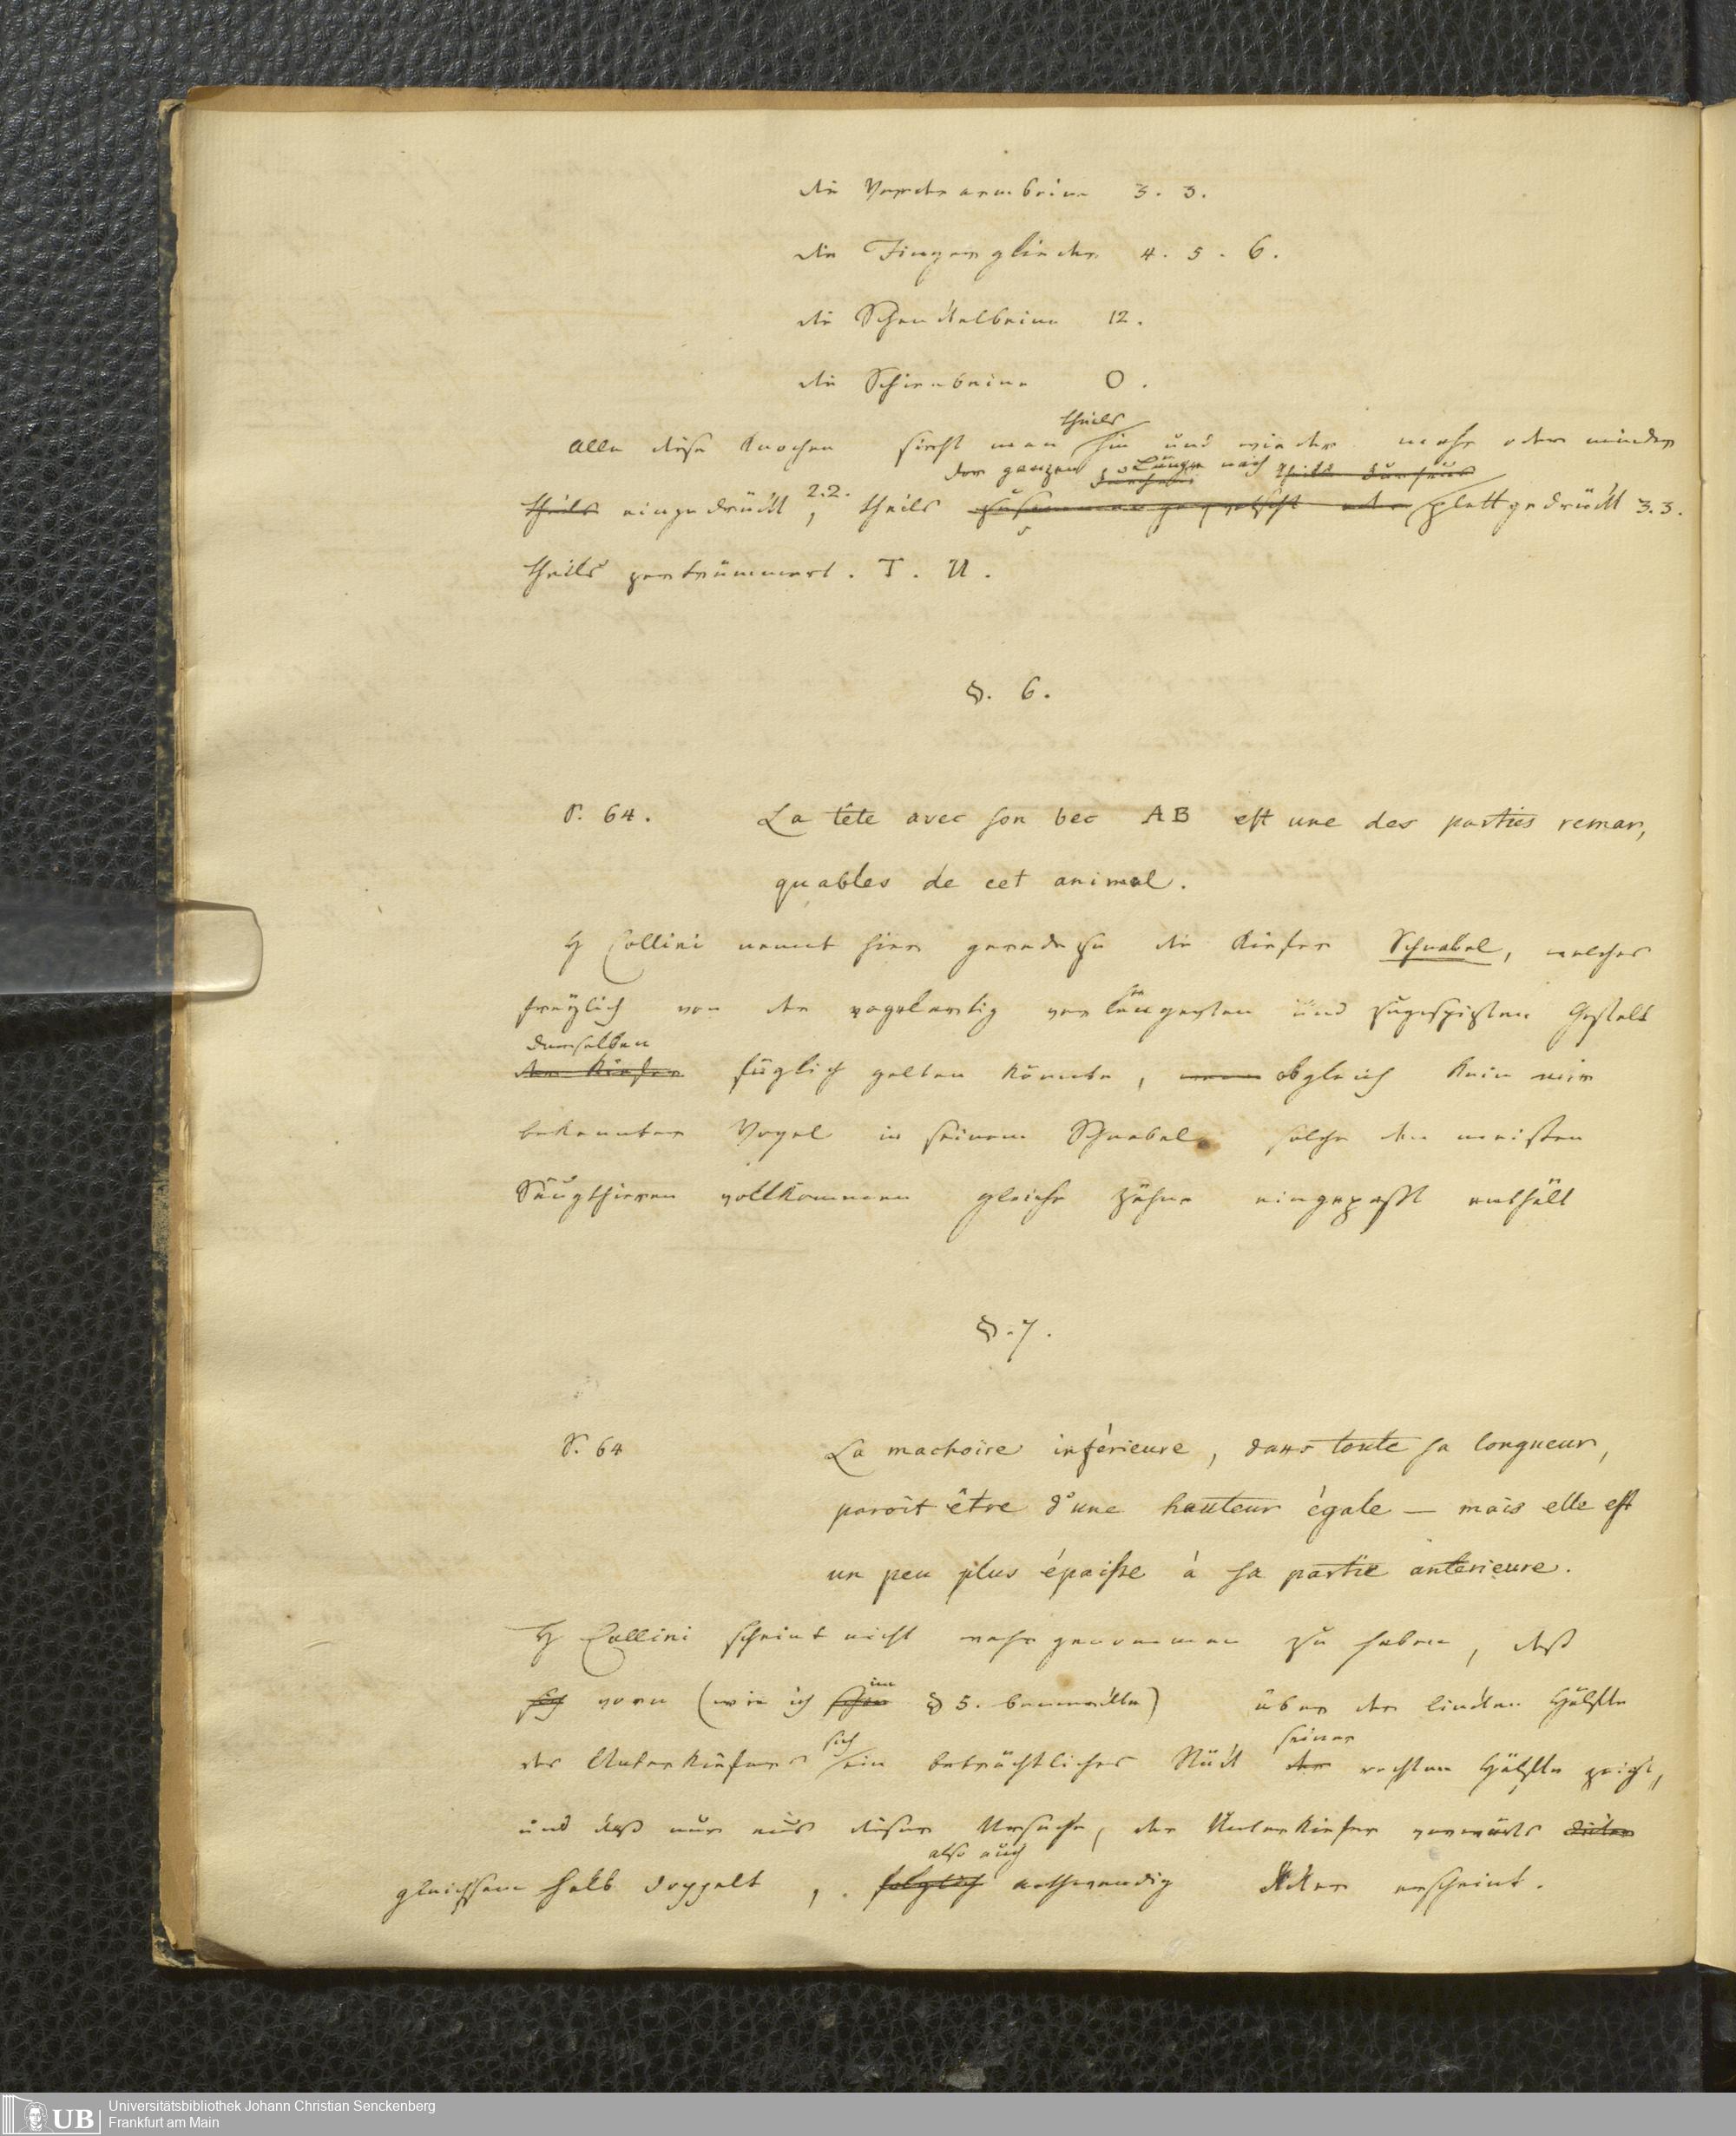 die Vorderarmbeine 3. 3.
die Fingerglieder 4. 5. 6.
die Schenkelbeine 12.
die Schienbeine O.
theils
Alle diese Knochen sieht man hin und wieder mehr oder minder
der ganzen Länge nach
theils eingedrückt 2.2., theils zusammengequetscht oder plattgedrückt 3.3.
theils zertrümmert. T. U.
§. 6.
S. 64. La tête avec son bec AB est une des parties remar,
quables de cet animal.
H Collini nennt hier geradezu die Kiefer Schnabel, welches
freylich von der vogelartig verlängerten und zugespizten Gestalt
derselben
der Kiefer füglich gelten könnte, obgleich kein mir
bekannter Vogel in seinem Schnabel solche den meisten
Säugthieren vollkommen gleiche Zähne eingepasst enthält
§. 7.
S. 64 La machoire inférieure, dans toute sa longueur,
paroit être d'une hauteur égale — mais elle est
un peu plus épaisse à sa partie anterieure.
H Collini scheint nicht wahrgenommen zu haben, daß
im
sich vorn (wie ich schon § 5. bemerkte) über der linken Hälfte
sich seiner
des Unterkiefers ein beträchtliches Stück der rechten Hälfte zeigt,
und daß nur aus dieser Ursache, der Unterkiefer vorwärts dicker
also auch
gleichsam halb doppelt, folglich nothwendig dicker erscheint.
Universitätsbibliothek Johann Christian Senckenberg
UB Frankfurt am Main